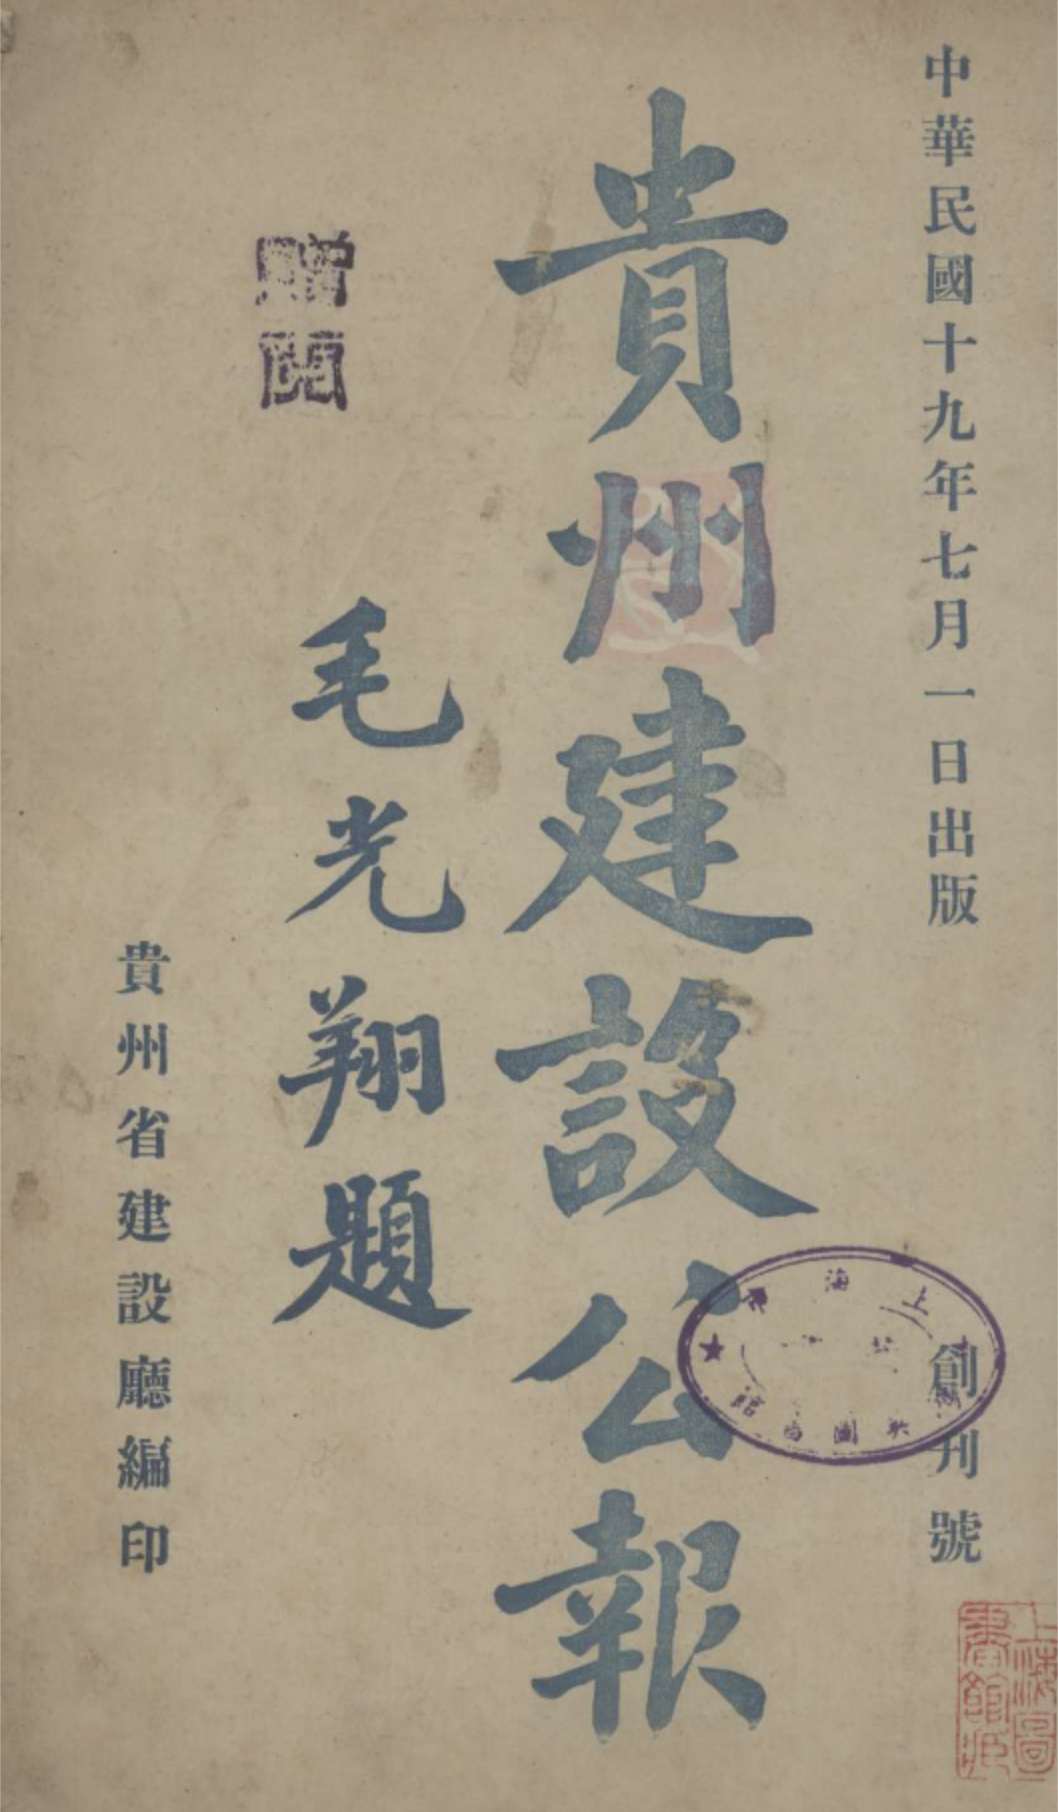 中華民國十九年七月一日出版
創刊號
貴州建設公報
毛光翔題
贈閱
貴州省建設廳編印
上海圖
書館藏